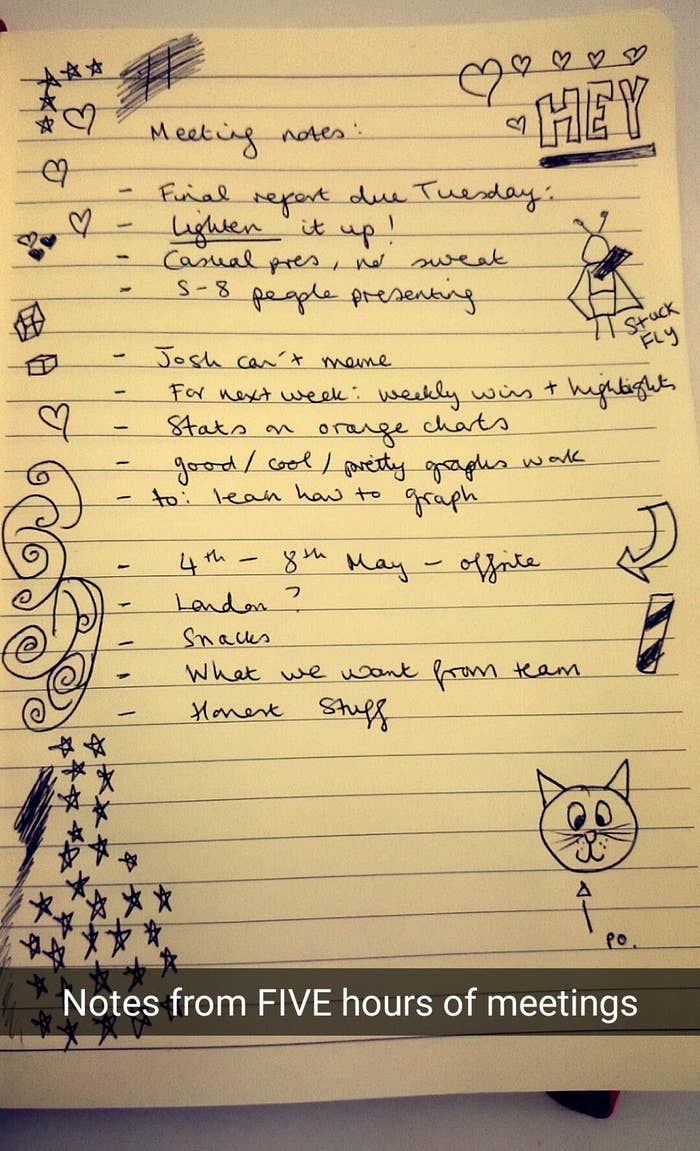 HEY
Meeting notes:
- Final report due Tuesday:
- Lighten it up!
- Casual pres, no sweat
- 5-8 people presenting
Stuck
FLY
- Josh can't meme
- For next week: weekly wins + highlights
- Stats on orange charts
- good/cool/pretty graphs work
- to: lean how to graph
- 4th - 8th May - offsite
- London?
- Snacks
- What we want from team
- Honest Stuff
po.
Notes from FIVE hours of meetings